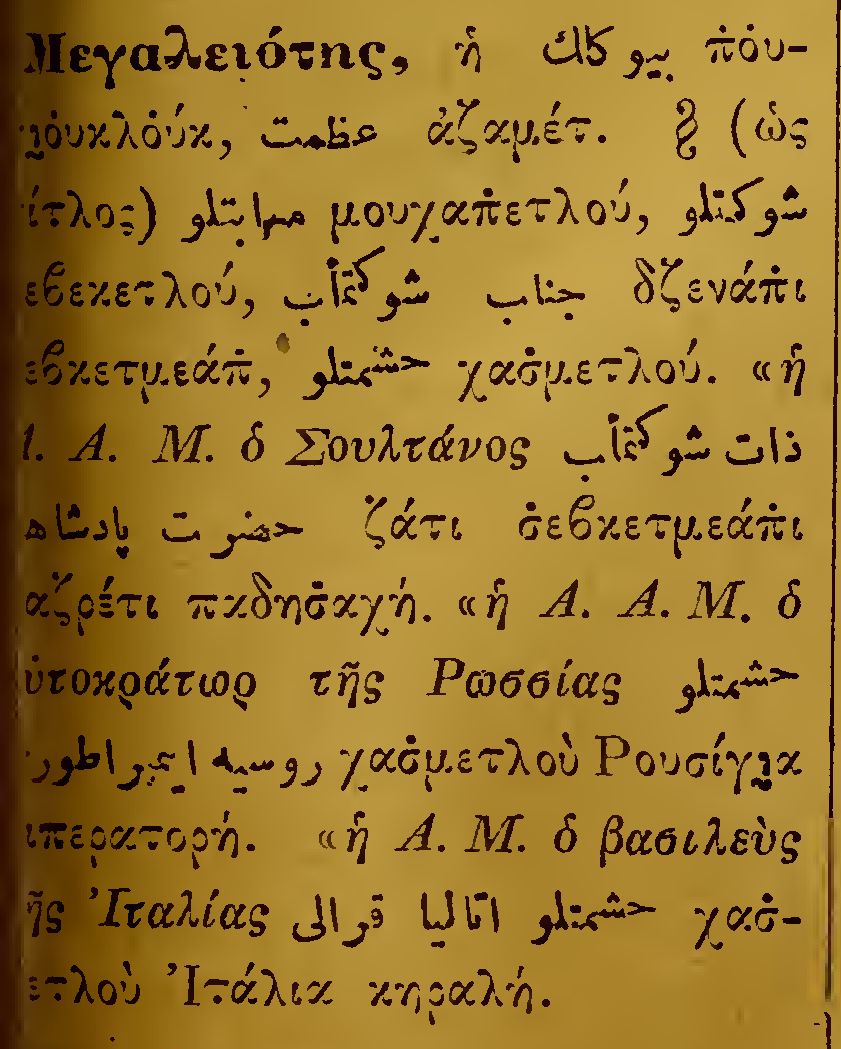 Μεγαλειότης, ἡ بيوكلك π̇ὀυ-
γ̇ὀυκλὀύκ, عظمت ἀζαμέτ. § (ὡς
ίτλος) مهابتلو μουχαπ̇ετλού, شوكتلو
εβεκετλού, شوكتمأب جناب δζενάπ̇ι
εβκετμεάπ̇, حشمتلو χασ̇μετλού. «ἡ
Α. Μ. ὁ Σουλτάνος ذات شوكتمأب
حضرت پادشاه ζάτι σ̇εβκετμεάπ̇ι
αζρέτι παδησ̇αχή. «ἡ Α. Α. Μ. ὁ
ὐτοκράτωρ τῆς Ρωσσίας حشمتلو
روسيه ايمپراطورى χασ̇μετλοὺ Ρουσίγια
ιπερατορή. «ἡ Α. Μ. ὁ βασιλεὺς
ῆς Ἰταλίας حشمتلو اتاليا قرالى χασ̇-
ετλοὺ Ἰτάλια κηραλή.